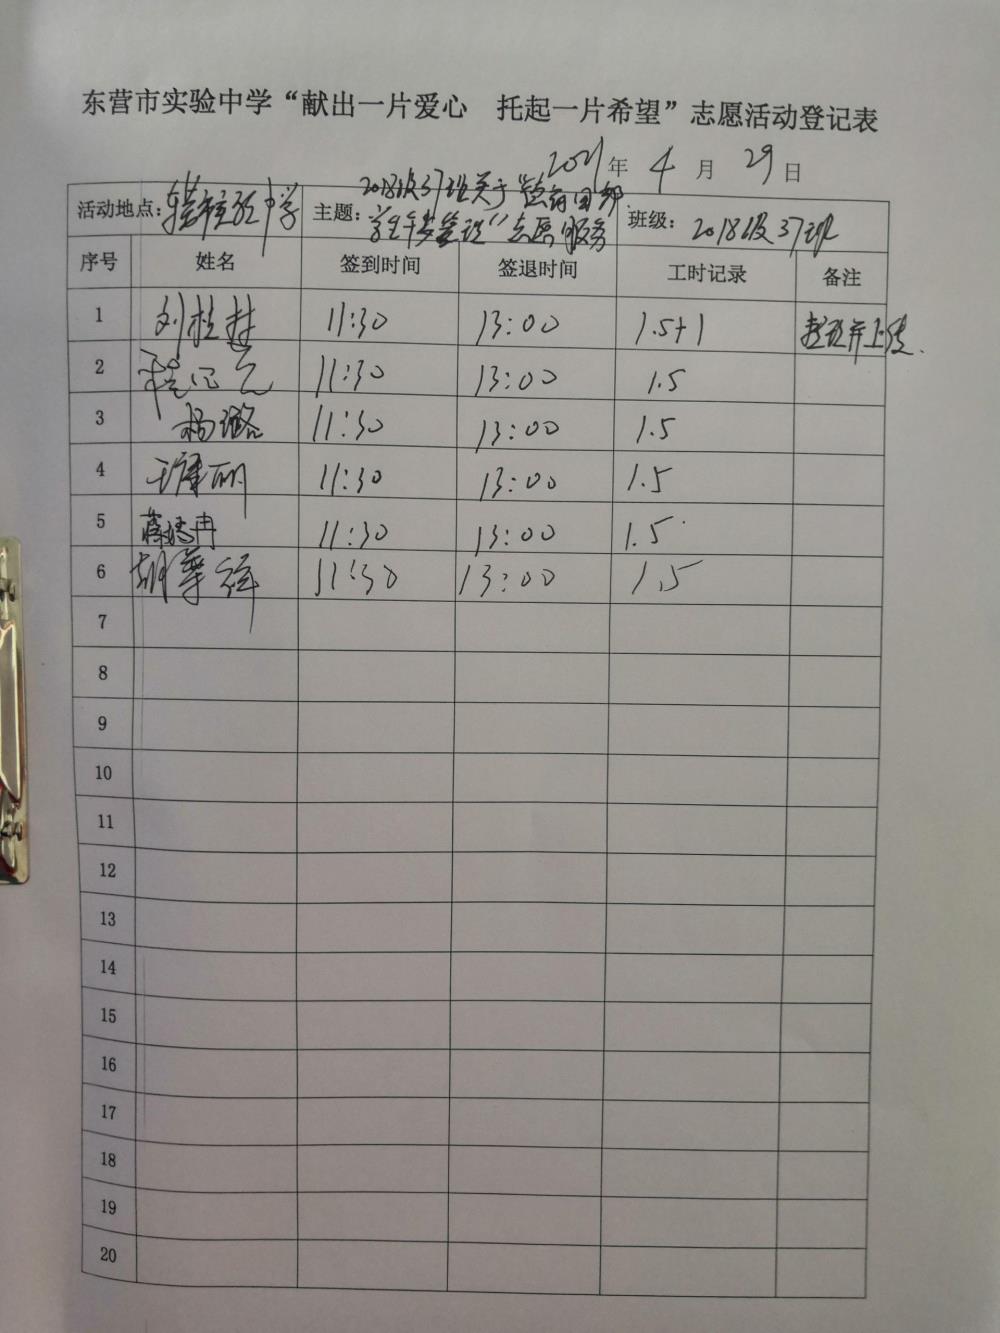 东营市实验中学“献出一片爱心 托起一片希望”志愿活动登记表
2021年 4月 29日
活动地点：东营市实验中学 主题：2018级37班关于 志愿服务 班级：2018级37班
序号 姓名 签到时间 签退时间 工时记录 备注
1 刘桂林 11:30 13:00 1.5+1 整理并上传
2 11:30 13:00 1.5
3 杨璐 11:30 13:00 1.5
4 11:30 13:00 1.5
5 11:30 13:00 1.5
6 11:30 13:00 1.5
7
8
9
10
11
12
13
14
15
16
17
18
19
20